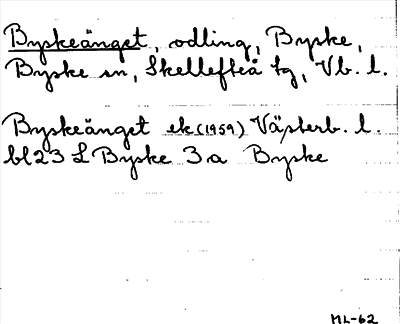 Byskeänget, odling, Byske,
Byske sn, Skellefteå tg, Vb. l.
Byskeänget ek (1959) Västerb. l.
bl 23 L Byske 3 a Byske
ML-62